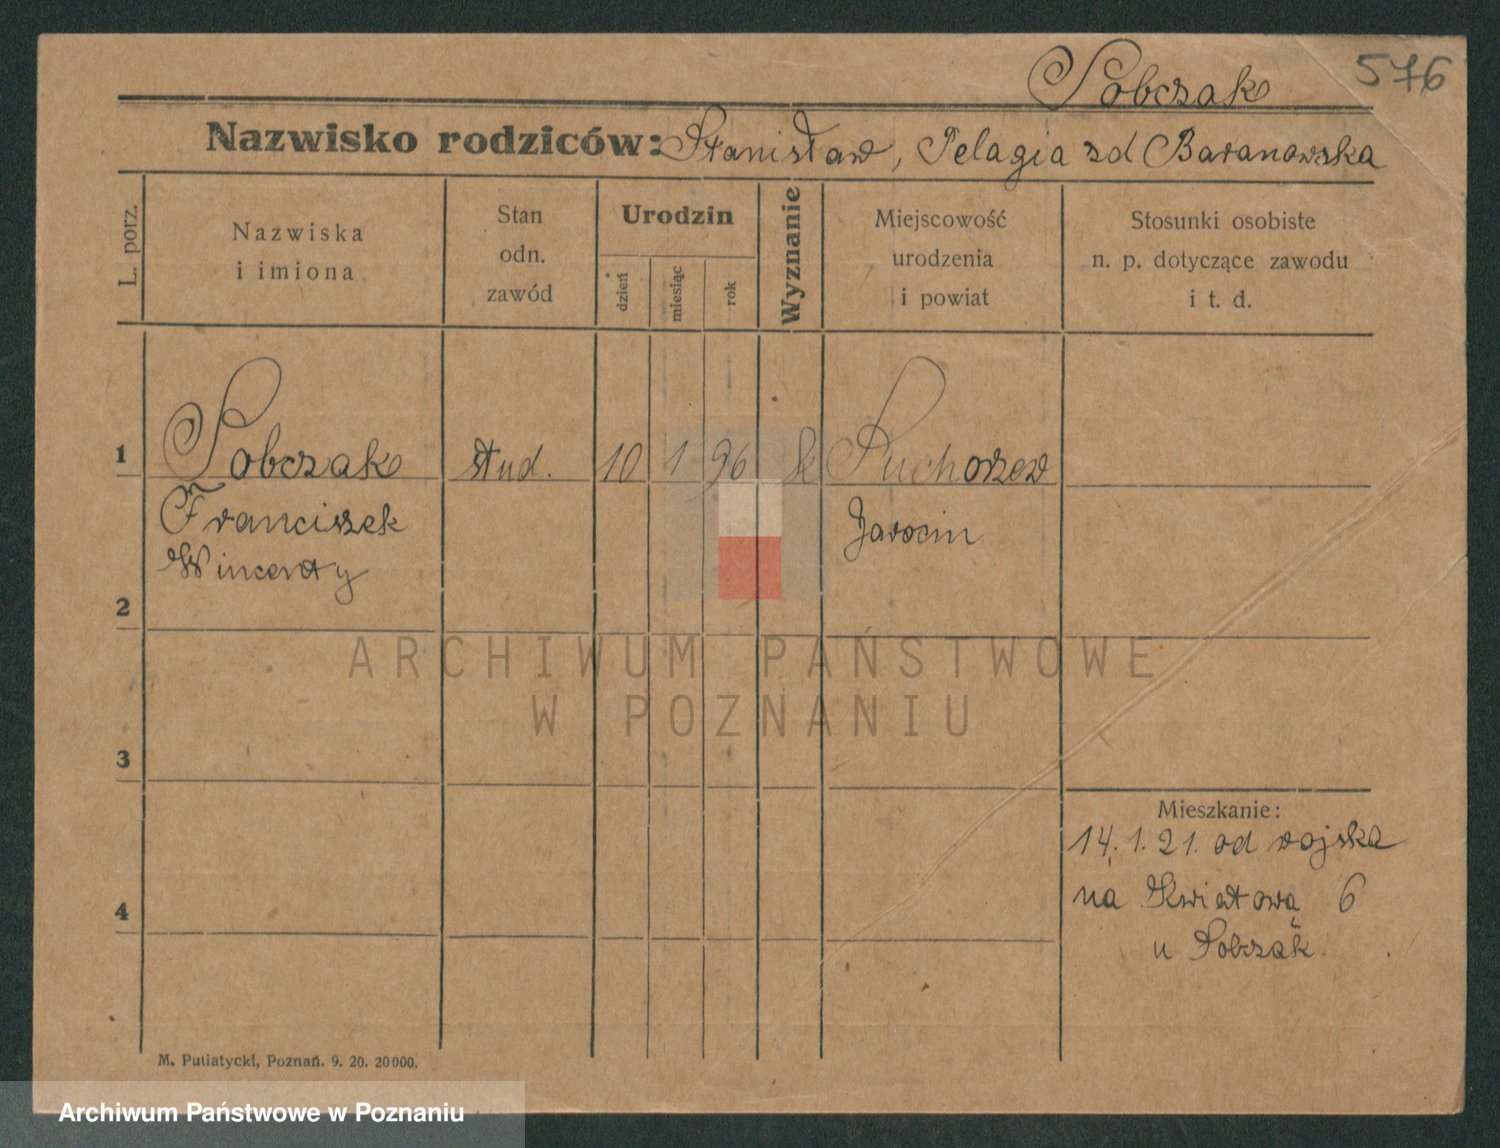 576
Sobczak
Nazwisko rodziców: Stanisław, Pelagia zd Baranowska
L. porz.
Nazwiska
i imiona
Stan
odn.
zawód
Urodzin
dzień
miesiąc
rok
Wyznanie
Miejscowość
urodzenia
i powiat
Stosunki osobiste
n. p. dotyczące zawodu
i t. d.
1 Sobczak stud. 10 1 96 k Suchorzew
Franciszek Jarocin
Wincenty
2
ARCHIWUM PAŃSTWOWE
W POZNANIU
3
Mieszkanie:
14.1.21. od wojska
na Kwiatową 6
u Sobczak.
4
M. Putiatycki, Poznań. 9. 20. 20000.
Archiwum Państwowe w Poznaniu